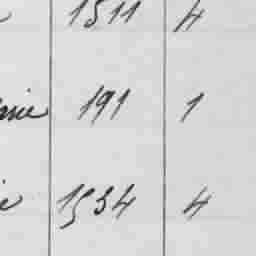 1511 4
191 1
1534 4